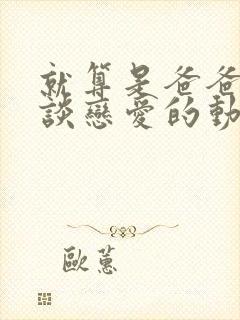 就算是爸爸
談戀愛的動
歐蕙